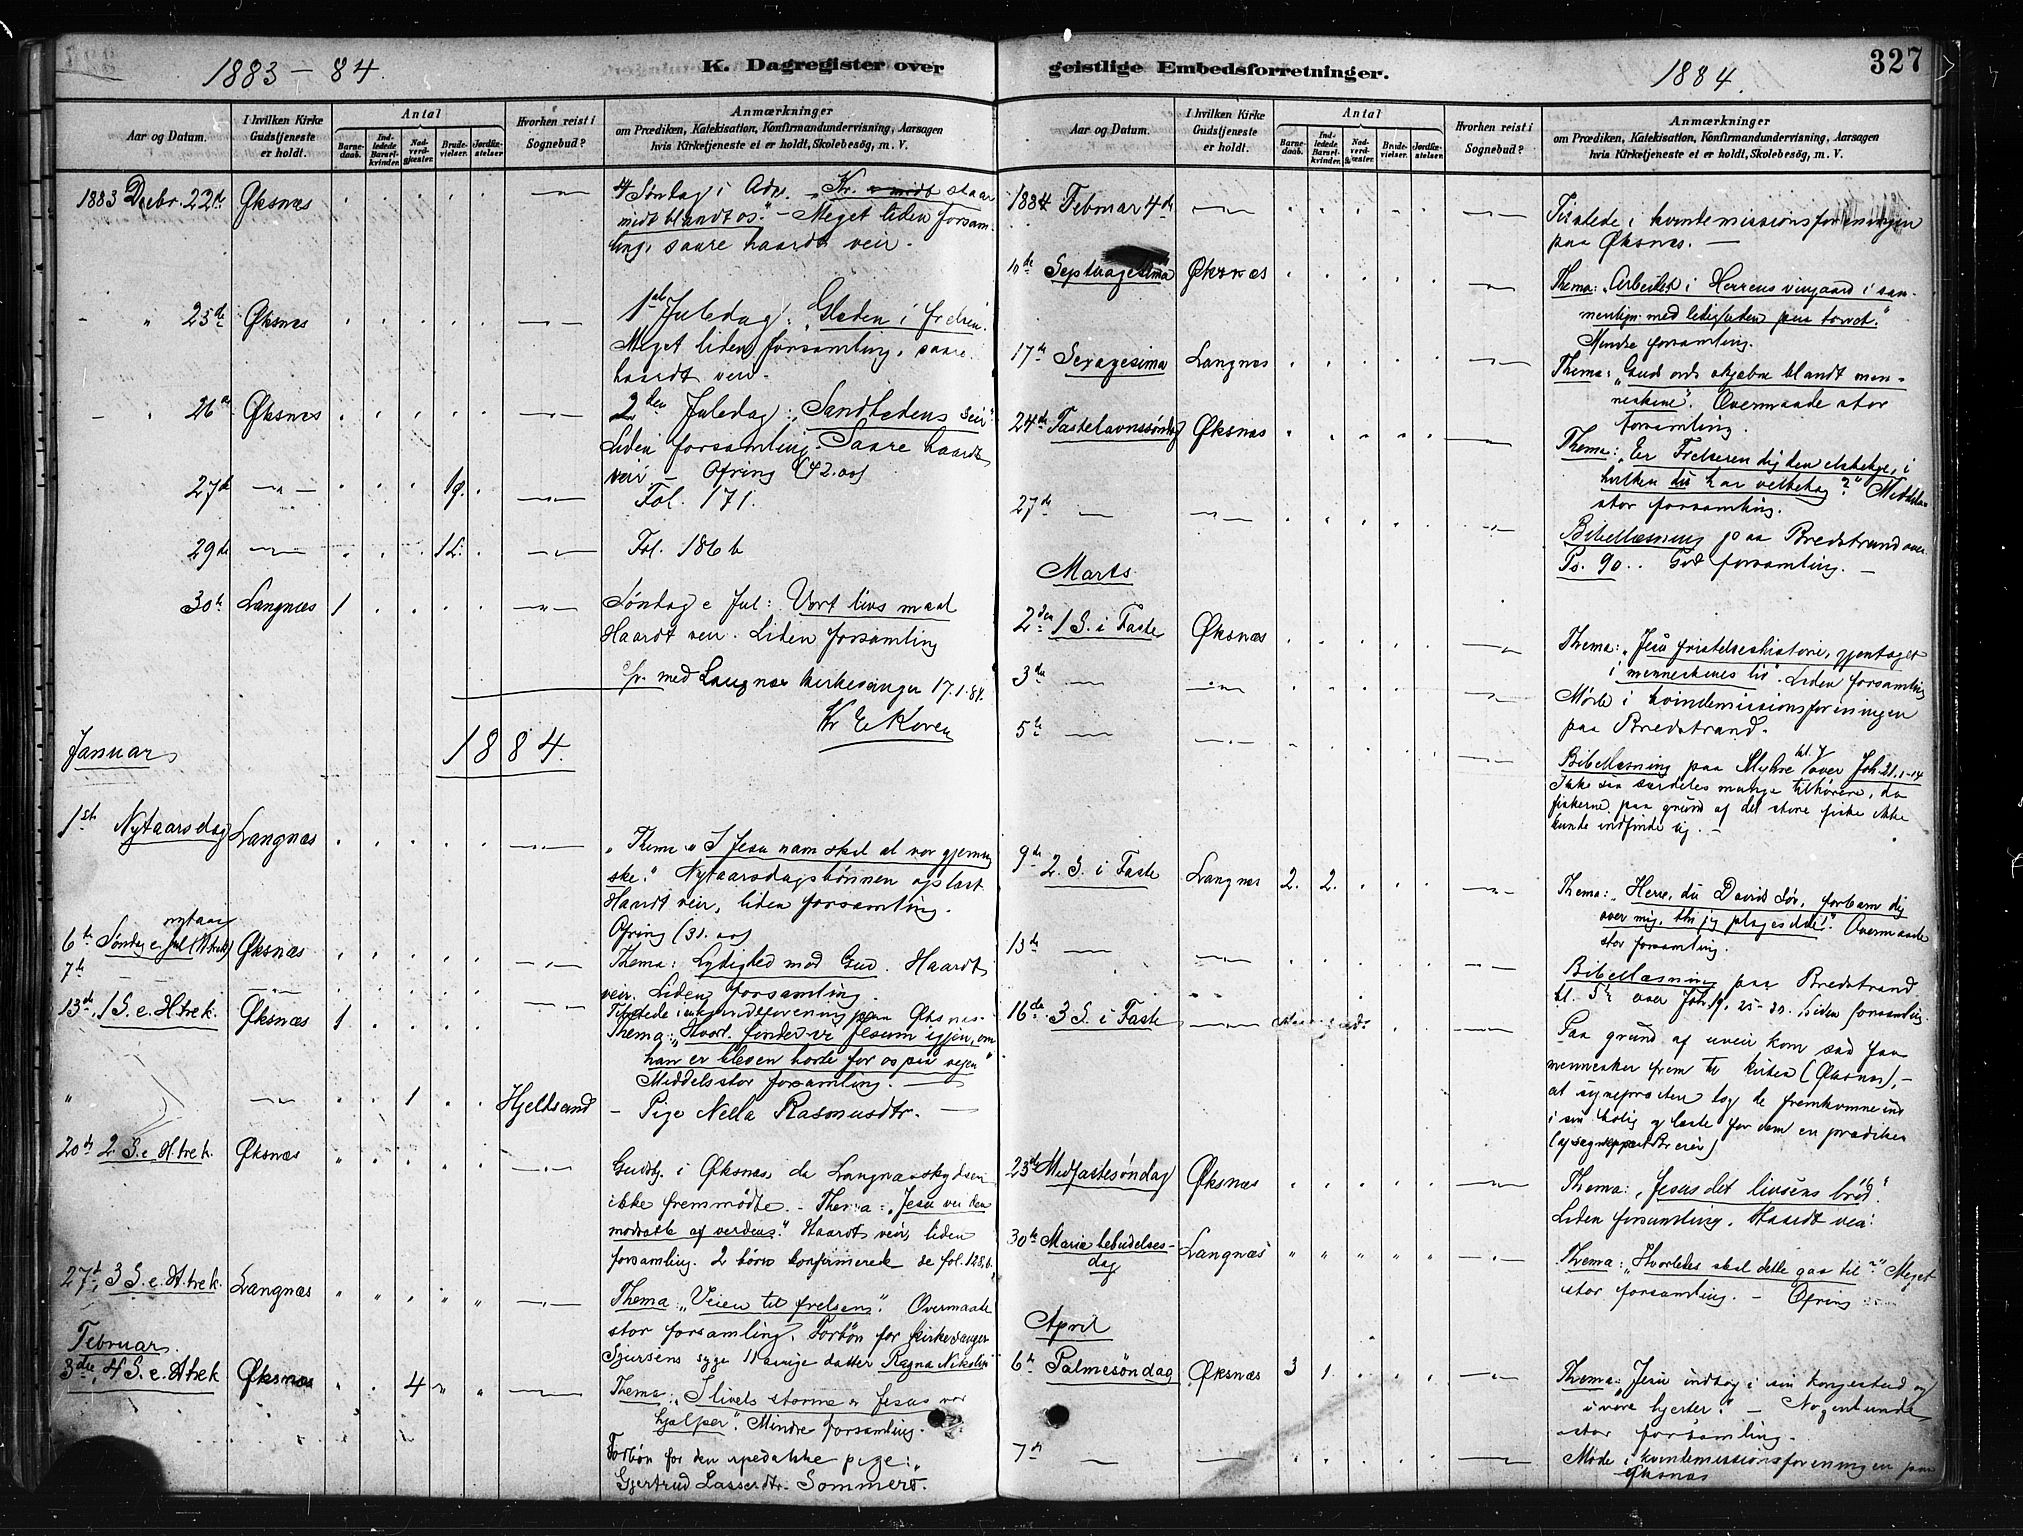 1883 - 84.
K. Dagregister over
Aar og Datum.
I hvilken Kirke Gudstjeneste er holdt.
Antal
Barnedaab.
Indledede Barselkvinder.
Nadverdgjester.
Brudevielser.
Jordfæstelser
Hvorhen reist i Sognebud?
Anmærkninger
om Prædiken, Katekisation, Konfirmandundervisning, Aarsagen
hvis Kirketjeneste ei er holdt, Skolebesög, m. V.
1883 Decbr. 22de Øksnæs
4 Søndag i Adv. "Kr. staar
midt blandt os." - Meget liden forsam-
ling, saare haardt veir.
" 25de Øksnæs
1ste Juledag: "Glæden i frelsen.
Meget liden forsamling, saare
haardt veir.
" 26de Øksnæs
2den Juledag: "Sandhedens seir"
Liden forsamling. Saare haardt
veir. - Ofring
27de 19.
Fol. 171.
29de 12.
Fol. 186 b
30te Langnæs 1
Søndag e Jul: Vort livs maal
Haardt veir. Liden forsamling
med Langnæs kirkesanger 17.1.84.
Kr E Koren
Januar
1884.
1ste Nytaarsdag Langnæs
"Thema "I Jesu nam skal al vor gjerning
ske." Nytaarsdagsbønnen oplæst.
Haardt veir, liden forsamling.
Ofring
nytaar
6te Søndag e. Jul (H.trek) Øksnæs
Thema: Lydighed mod Gud. Haardt
veir. Liden forsamling.
7de
Tilstede i paa Øksnæs.
13de, 1 S. e. H.trek. Øksnæs 1
Thema: "Hvorl. finder vi Jesum igjen, om
han er bleven borte for os paa vejen"
Middelsstor forsamling. -
" 1 Hjeldsand
- Pige Nella Rasmusdtr. -
20de 2 S. e H.trek. Øksnæs
Gudstj. i Øksnæs da Langnæsskydsen
ikke fremmødte. - Thema: "Jesu vei den
modsatte af verdens." Haardt veir, liden
forsamling. 2 børn konfirmerede se fol. 128,b.
27de, 3 S. e. H.trek. Langnæs
Thema: "Veien til frelsen". Overmaade
stor forsamling. Forbøn for kirkesanger
Sjursens syge 11 aarige datter Ragna Nikolin
Februar.
3die, 4 S. e. H.trek Øksnæs 4
Thema: "I livets storme er Jesus vor
hjælper". Mindre forsamling.
Forbøn for den spedalske pige:
Gjertrud Lassesdtr. Sommerø.
geistlige Embedsforretninger.
1884.
327
Aar og Datum.
I hvilken Kirke Gudstjeneste er holdt.
Antal
Barnedaab.
Indledede Barselkvinder.
Nadverdgjester.
Brudevielser.
Jordfæstelser.
Hvorhen reist i Sognebud?
Anmærkninger
om Prædiken, Katekisation, Konfirmandundervisning, Aarsagen
hvis Kirketjeneste ei er holdt, Skolebesög, m. V.
1884 Februar 4de
Tilstede i kvindemissionsforeningen
paa Øksnæs. -
10de Septuagesima Øksnæs
Thema: "Arbeidet i Herrens vingaard i sam-
menlign. med lediggangen paa torvet."
Mindre forsamling.
17de Sexagesima Langnes
Thema: "Guds ords skjæbne blandt men-
neskene". Overmaade stor
forsamling.
24de Fastelavnssøndag Øksnæs
Thema: "Er Frelseren dig den elskelige, i
hvilken du har velbehag?" Middels
stor forsamling.
27de
Bibellæsning paa Bredstrand over
Ps. 90. God forsamling. -
Marts
2den 1 S. i Faste Øksnæs
Thema: "Jesu fristelseshistorie, gjentaget
i menneskenes liv". Liden forsamling
3die
Møde i kvindemissionsforeningen
paa Bredstrand.
5te
Bibellæsning paa Myhre kl. 7 over Joh. 21. 1-14
Ikke saa særdeles mange tilhørere, da
fiskerne paa grund af det store fiske ikke
kunde indfinde sig. -
9de 2. S. i Faste Langnes 2. 2.
Thema: "Herre, du Davids Søn, forbarm dig
over mig, thi jeg plages ilde!" Overmaade
stor forsamling.
13de
Bibellæsning paa Bredstrand
kl. 5½ over Joh. 19, 25-30. Liden forsamling.
16de 3 S. i Faste
Paa grund af uveir kom saa faa
mennesker frem til kirken (Øksnæs), -
at sognepresten tog de fremkomne ind
i sin bolig og læste for dem en prædiken
23de Midfastesøndag Øksnæs
Thema: "Jesus det livsens brød".
Liden forsamling. Haardt veir.
30te Maria bebudelses-
dag Langnæs
Thema: "Hvorledes skal dette gaa til?" Meget
stor forsamling. - Ofring
April
6te Palmesöndag Øksnæs 3 1.
Thema: "Jesu indtog i sin kongestad og
i vore hjerter." - Nogenlunde
stor forsamling.
7de
Møde i kvindemissionsforeningen paa
Øksnæs